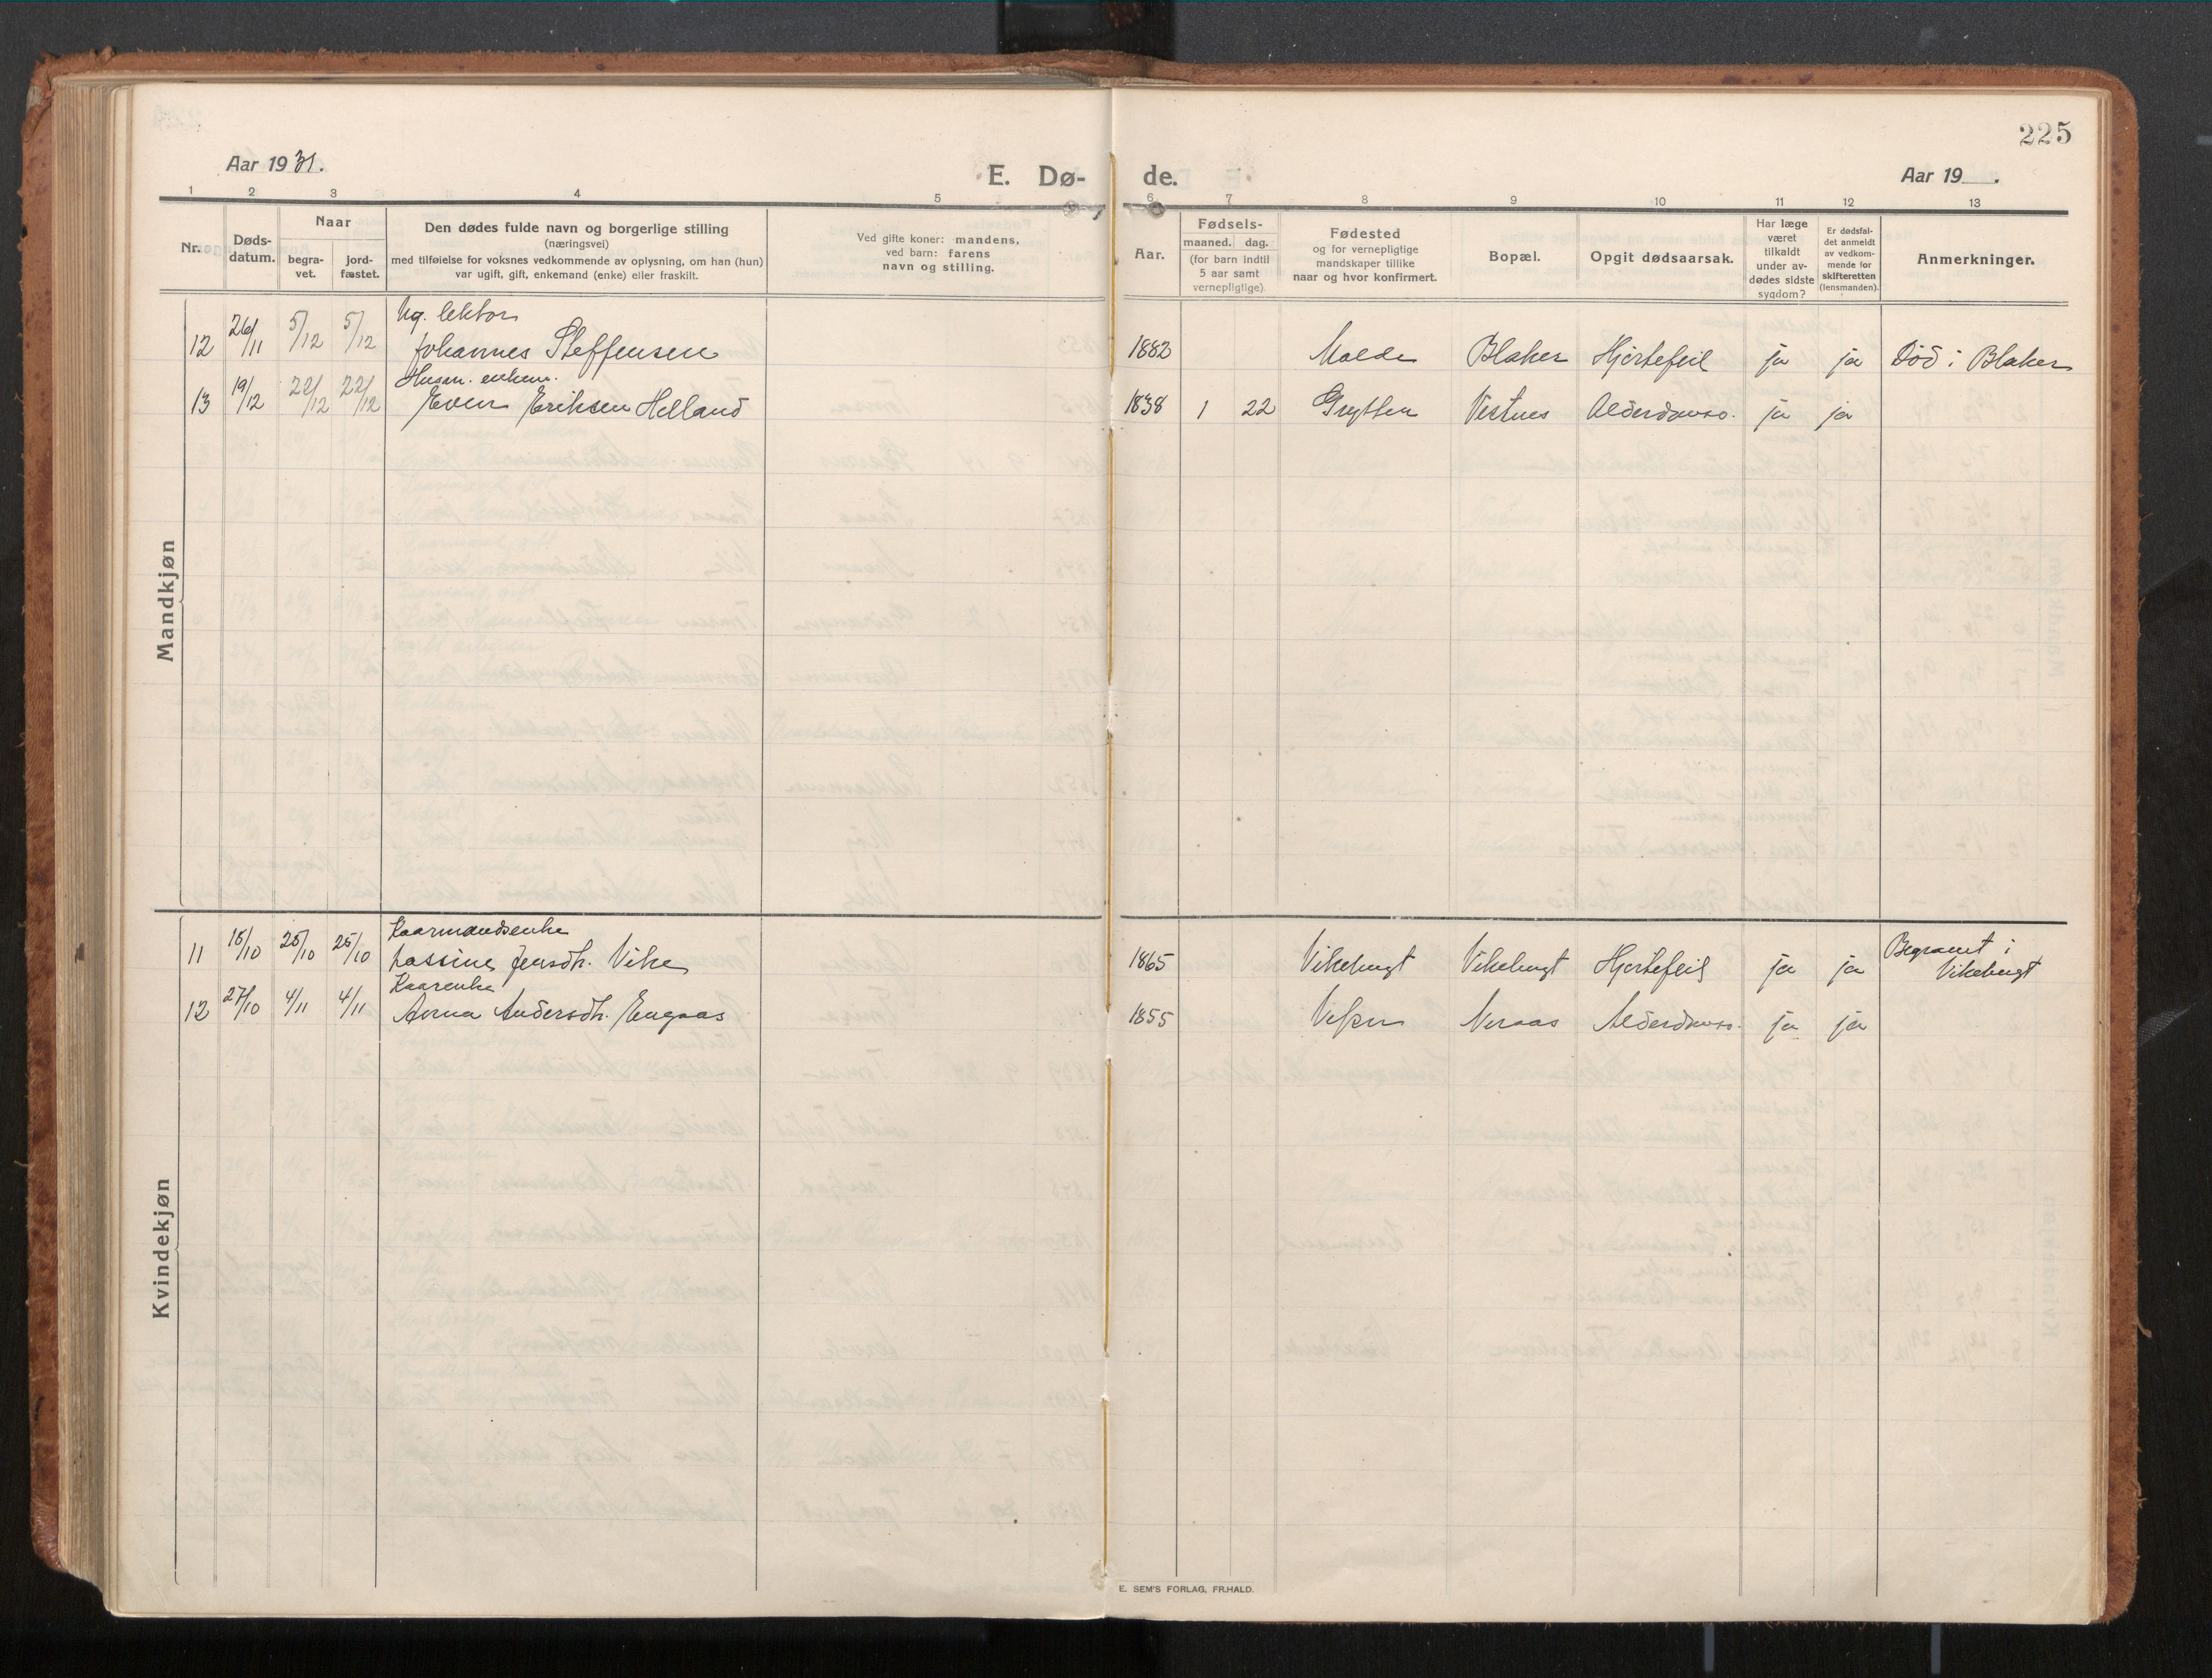 225
Aar 1931.
E. Dø-de.
Aar 19 .
1 2 3 4 5 6 7 8 9 10 11 12 13
Nr.
Døds-
datum.
Naar
begra-
vet.
jord-
fæstet.
Den dødes fulde navn og borgerlige stilling
(næringsvei)
med tilføielse for voksnes vedkommende av oplysning, om han (hun)
var ugift, gift, enkemand (enke) eller fraskilt.
Ved gifte koner: mandens,
ved barn: farens
navn og stilling.
Aar.
Fødsels-
maaned. dag.
(for barn indtil
5 aar samt
vernepligtige)
Fødested
og for vernepligtige
mandskaper tillike
naar og hvor konfirmert.
Bopæl.
Opgit dødsaarsak.
Har læge
været
tilkaldt
under av-
dødes sidste
sygdom?
Er dødsfal-
det anmeldt
av vedkom-
mende for
skifteretten
(lensmanden).
Anmerkninger.
Mandkjøn
Ug. lektor
12 26/11 5/12 5/12 Johannes Steffensen 1882 Molde Blaker Hjertefeil ja ja Død i Blaker
Husm. enkem.
13 19/12 22/12 22/12 Even Eriksen Helland 1838 1 22 Grytten Vestnes Alderdomss. ja ja
Kvindekjøn
Kaarmandsenke
11 18/10 25/10 25/10 Lassine Jensdtr. Vike 1865 Vikebugt Vikebugt Hjertefeil ja ja Begravet i
Vikebugt
Kaarenke
12 27/10 4/11 4/11 Anna Andersdtr. Engaas 1855 Neraas Alderdomss. ja ja
E. SEM'S FORLAG, FR.HALD.